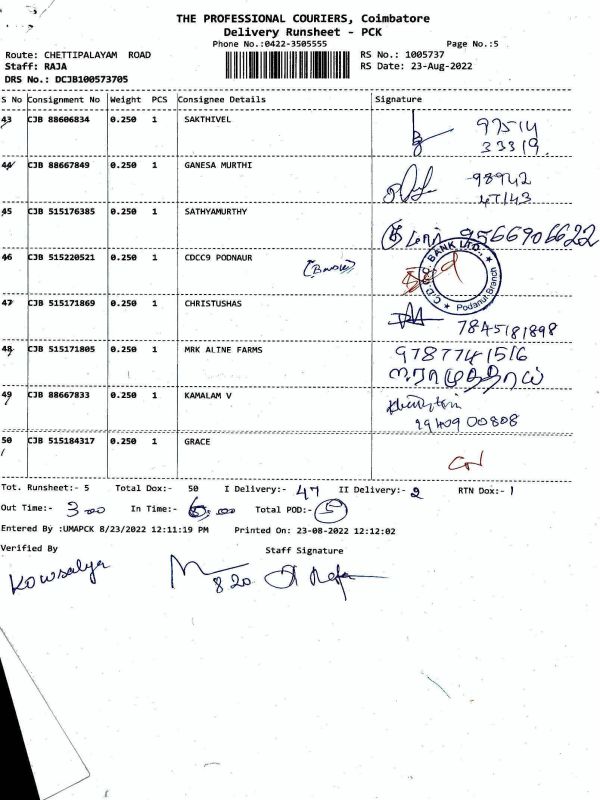 THE PROFESSIONAL COURIERS, Coimbatore
Delivery Runsheet - PCK
Phone No.:0422-3505555 Page No.:5
Route: CHETTIPALAYAM ROAD RS No.: 1005737
Staff: RAJA RS Date: 23-Aug-2022
DRS No.: DCJB100573705
S No Consignment No Weight PCS Consignee Details Signature
43 CJB 88606834 0.250 1 SAKTHIVEL 97514
33319
44 CJB 88667849 0.250 1 GANESA MURTHI 98942
47143
45 CJB 515176385 0.250 1 SATHYAMURTHY 9566906622
46 CJB 515220521 0.250 1 CDCC9 PODNAUR
C.D.C.C. BANK LTD., Podanur Branch
47 CJB 515171869 0.250 1 CHRISTUSHAS
7845181898
48 CJB 515171805 0.250 1 MRK ALINE FARMS 9787741516
ந.ராமுத்தாய்
49 CJB 88667833 0.250 1 KAMALAM V
9409 00808
50 CJB 515184317 0.250 1 GRACE
Tot. Runsheet:- 5 Total Dox:- 50 I Delivery:- 47 II Delivery:- 2 RTN Dox:- 1
Out Time:- 3.00 In Time:- 6.00 Total POD:- 5
Entered By :UMAPCK 8/23/2022 12:11:19 PM Printed On: 23-08-2022 12:12:02
Verified By Staff Signature
Kowsalya 820 Raja